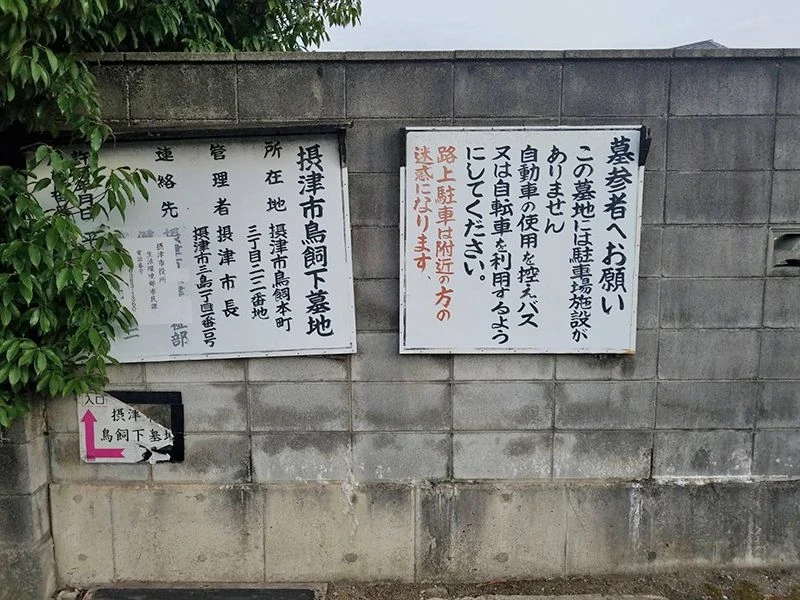 墓参者へお願い
この墓地には駐車場施設が
ありません
自動車の使用を控えバス
又は自転車を利用するよう
にしてください。
路上駐車は附近の方の
迷惑になります、
摂津市鳥飼下墓地
所在地 摂津市鳥飼本町
三丁目二二番地
管理者 摂津市長
摂津市三島一丁目一番一号
連絡先
摂津市役所
生活環境部市民課
入口
摂津
鳥飼下墓地